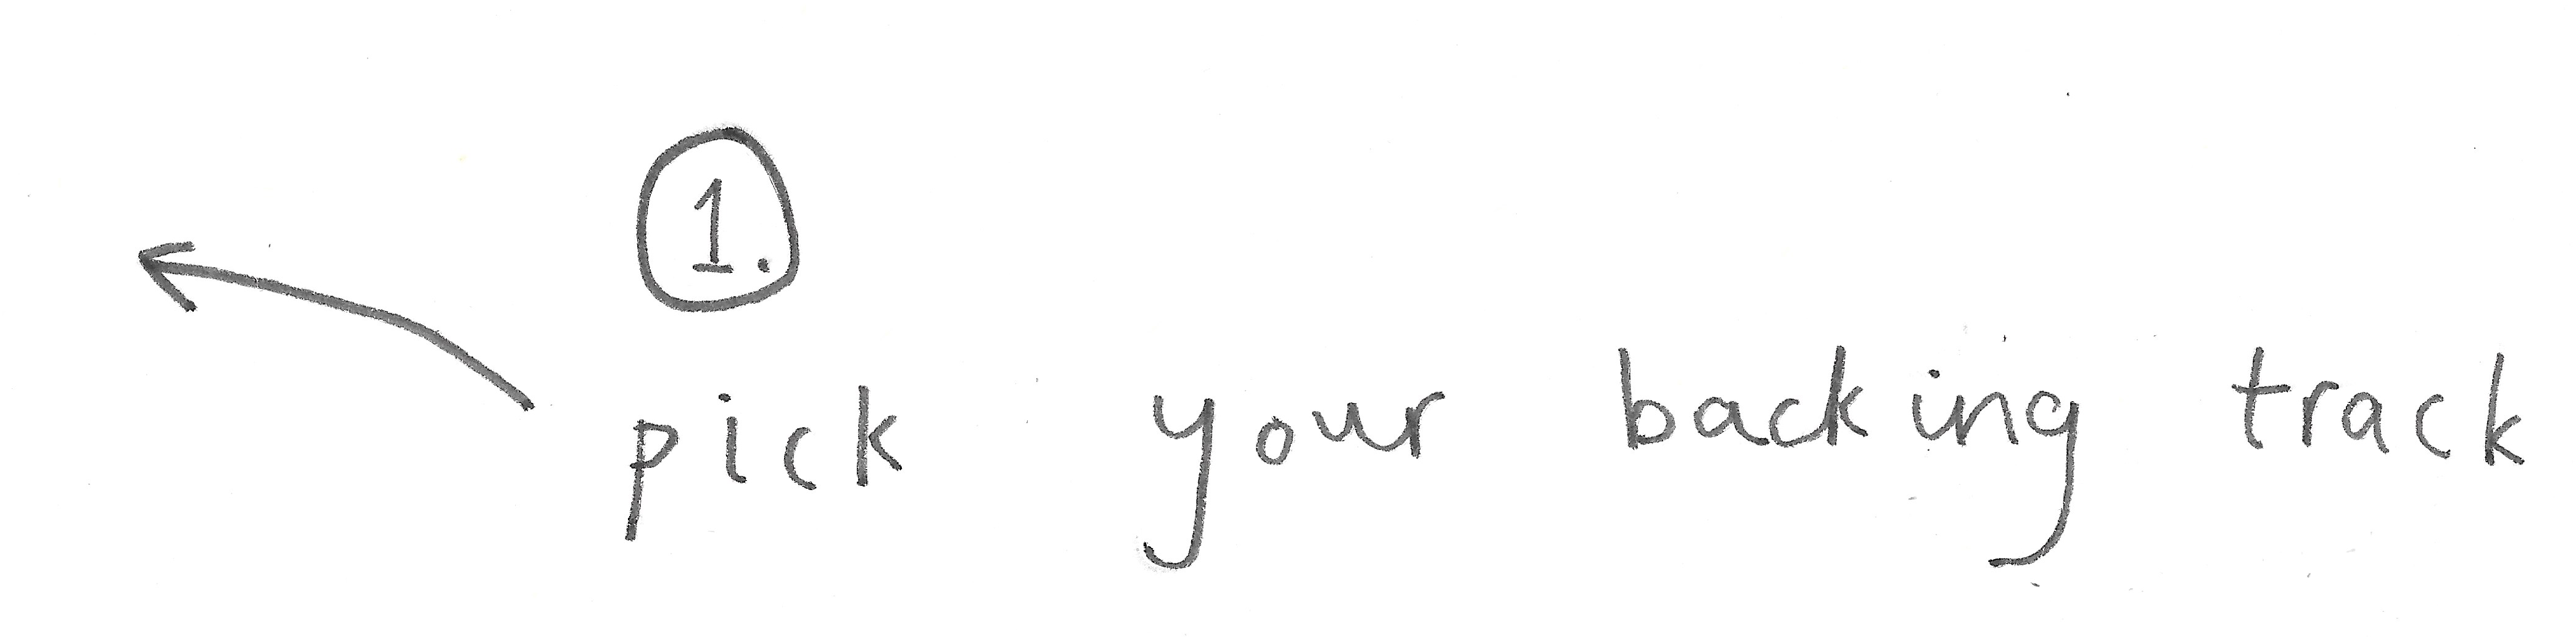 1.
pick your backing track